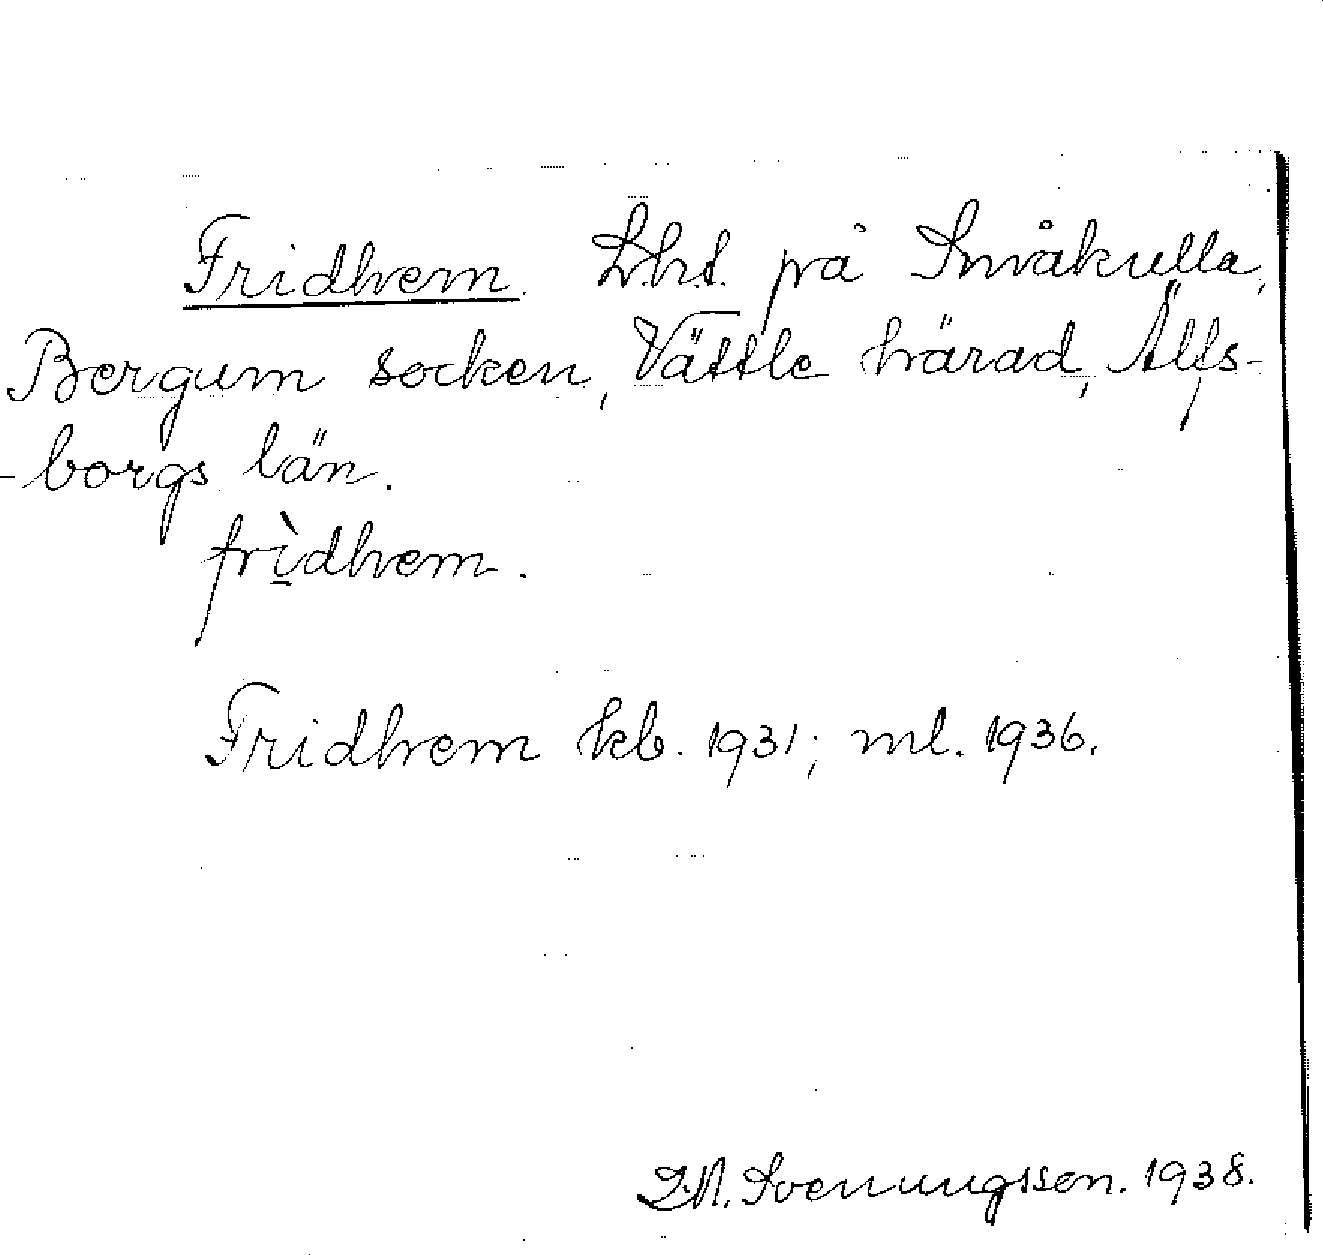 Fridhem. Lht. på Småkulla,
Bergum socken, Vättle härad, Älfs-
-borgs län.
frìdhem.
Fridhem kb. 1931; ml. 1936.
Svenungsson. 1938.